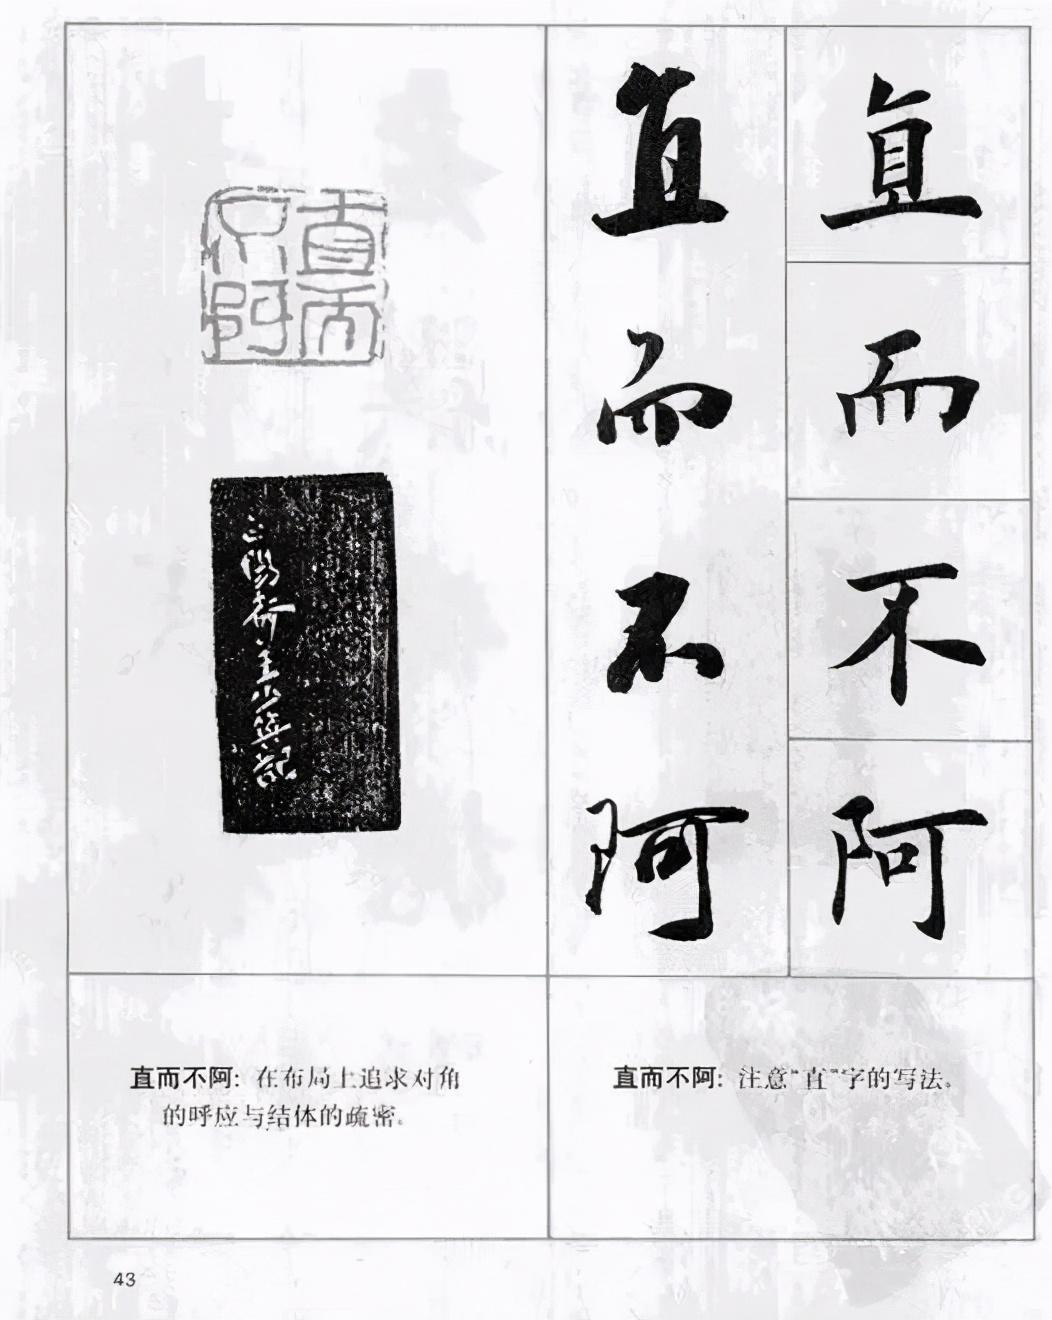 直而不阿
直而不阿
直而不阿
直而不阿: 在布局上追求对角
的呼应与结体的疏密。
直而不阿: 注意“直”字的写法。
43